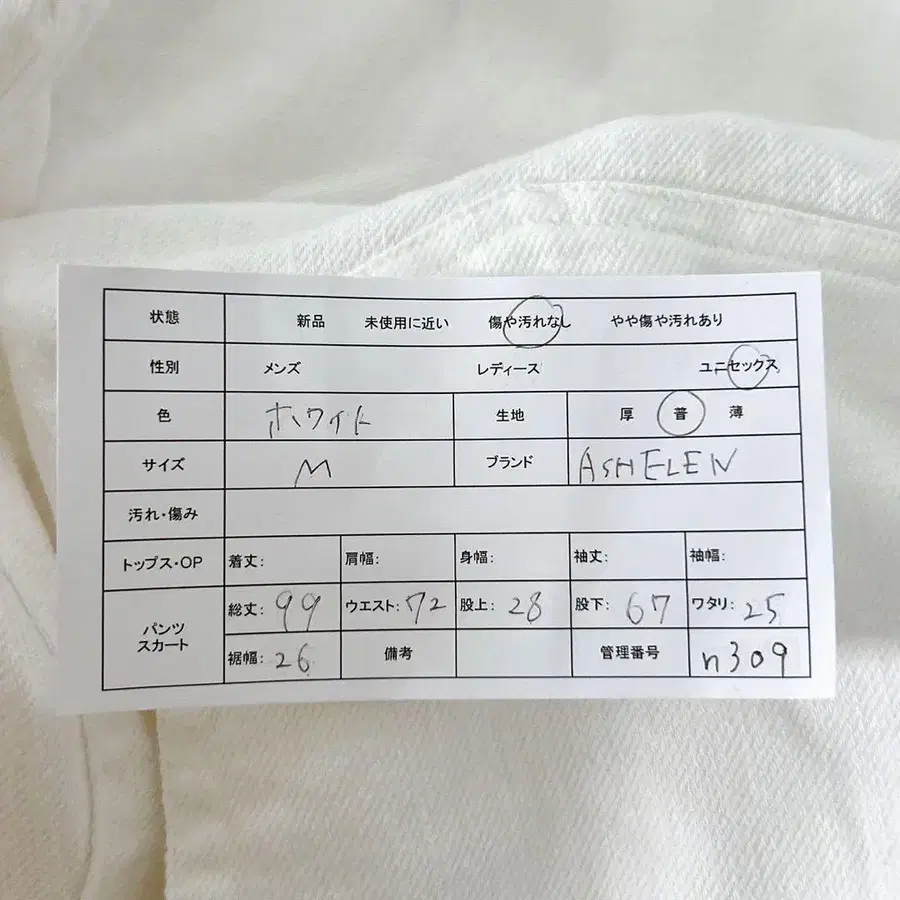 状態 新品 未使用に近い 傷や汚れなし やや傷や汚れあり
性別 メンズ レディース ユニセックス
色 ホワイト 生地 厚 普 薄
サイズ M ブランド ASHELEN
汚れ・傷み
トップス・OP 着丈: 肩幅: 身幅: 袖丈: 袖幅:
パンツ スカート 総丈: 99 ウエスト: 72 股上: 28 股下: 67 ワタリ: 25
裾幅: 26 備考 管理番号 n309